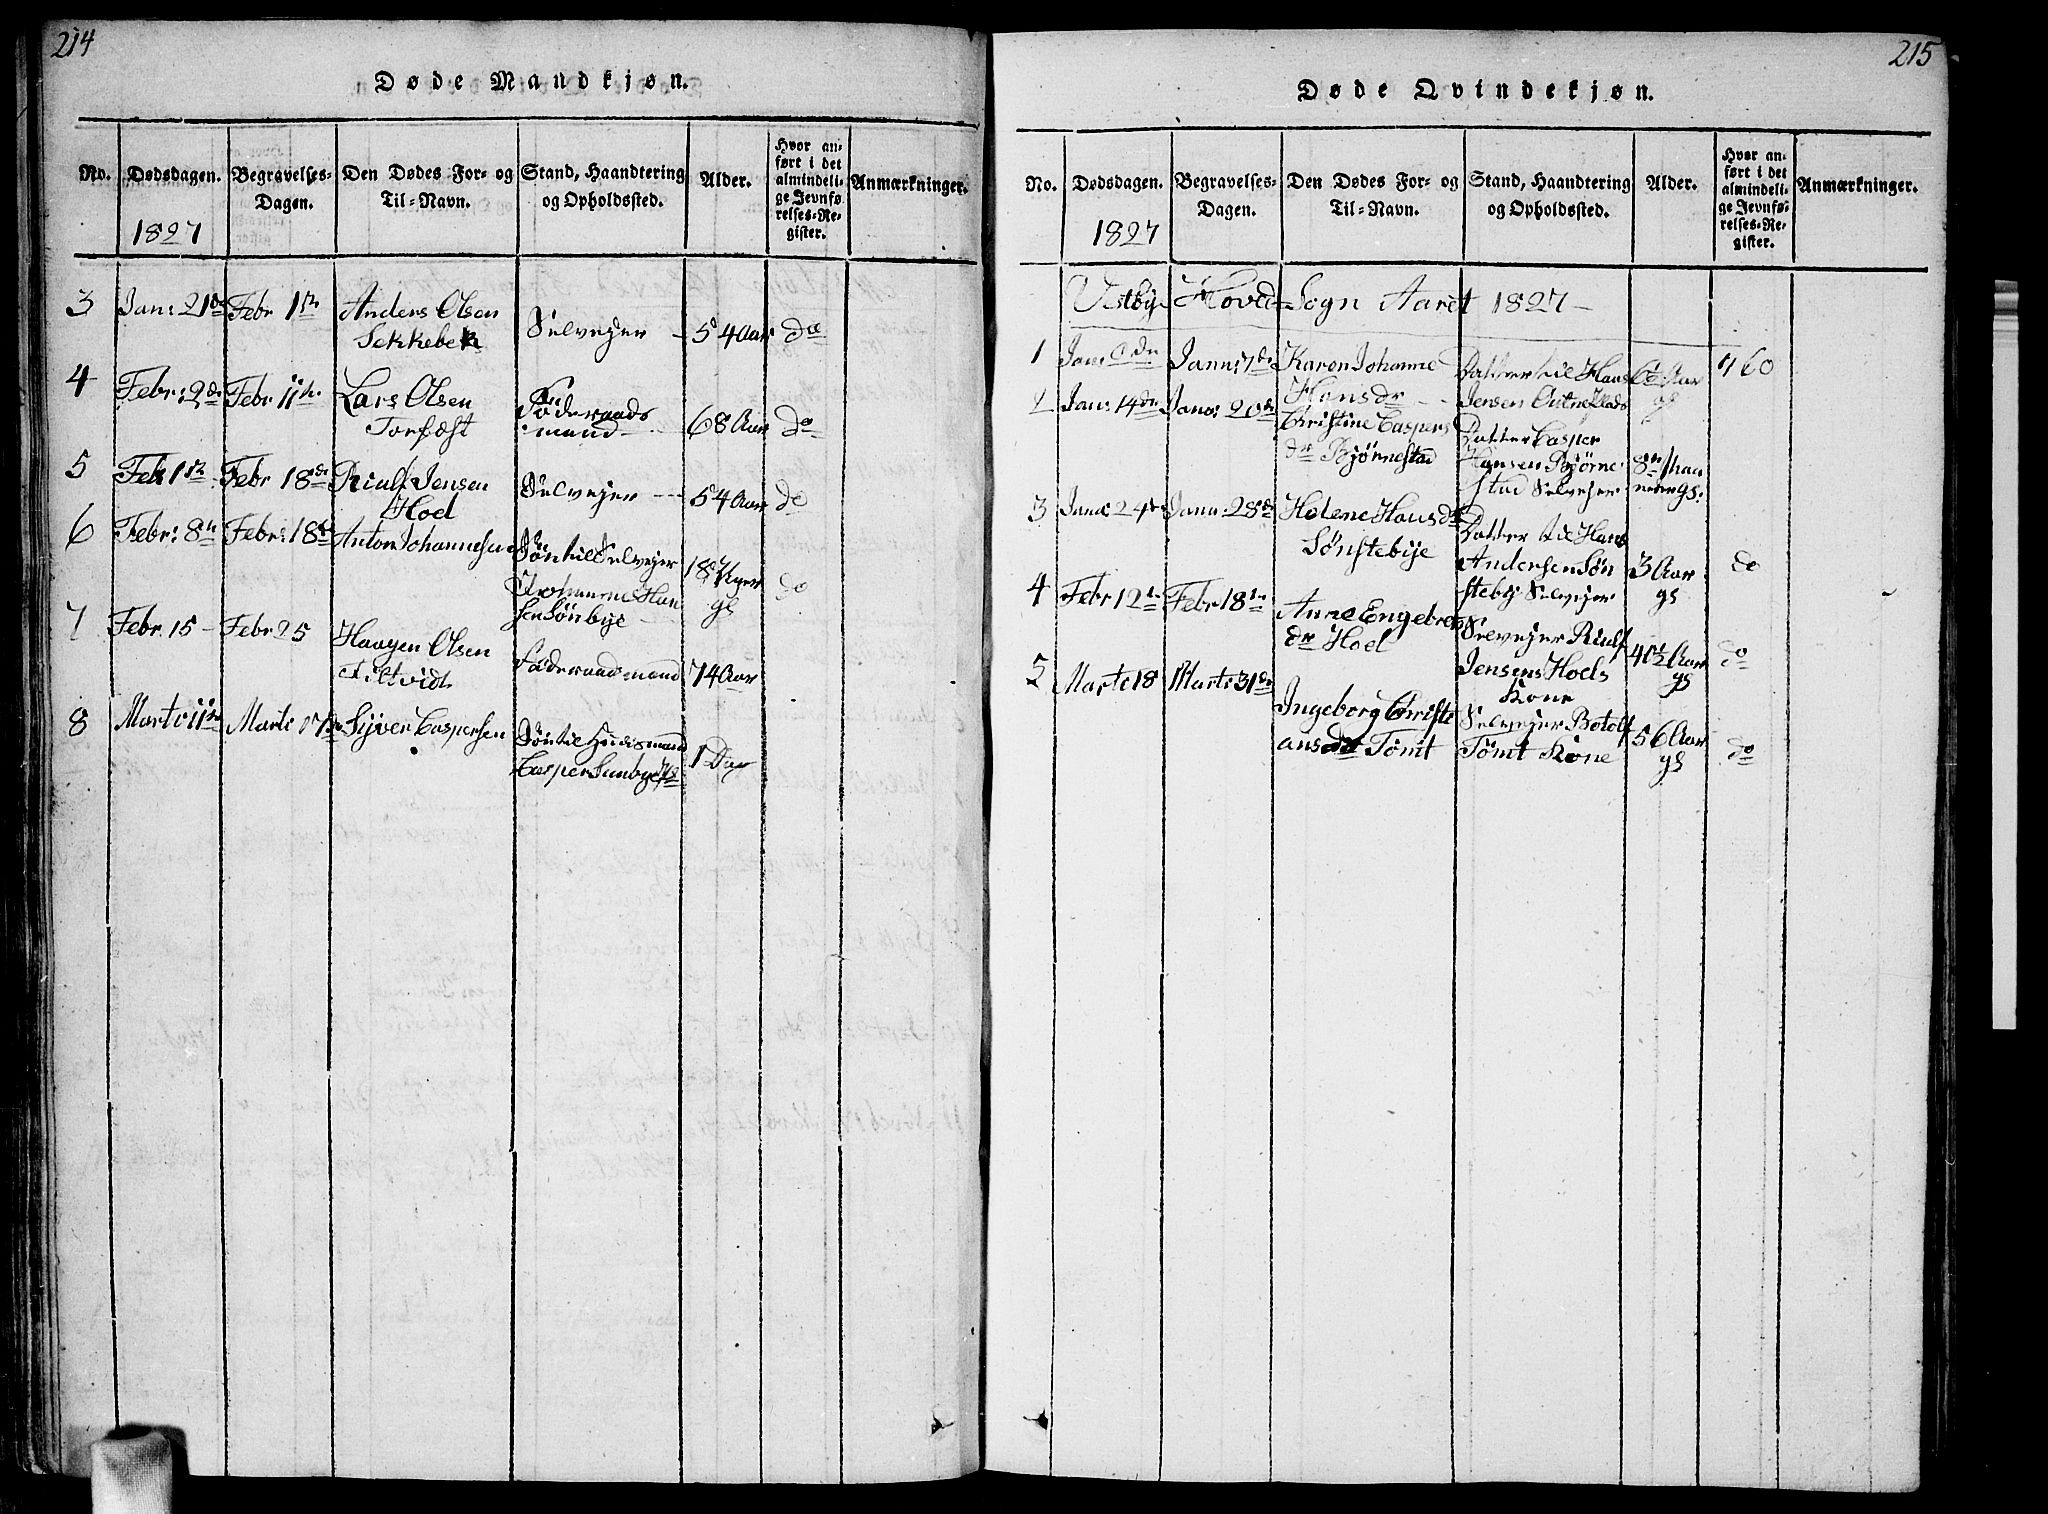 214
Døde Mandkjøn.
No.
Dødsdagen.
1827
Begravelses-
Dagen.
Den Dødes For- og
Til-Navn.
Stand, Haandtering
og Opholdssted.
Alder.
Hvor an-
ført i det
almindeli-
ge Jevnfø-
relses-Re-
gister.
Anmærkninger.
3 Jan: 21de Febr 1ste Anders Olsen
Sekkebek Selvejer 54 Aar do
4 Febr: 2de Febr 11te Lars Olsen
Torfæst Föderaads
mand 68 Aar do
5 Feb 1ste Febr 18de Riulf Jensen
Hoel Selvejer 54 Aar do
6 Febr: 8de Febr: 18de Anton Johannesen Søn til Selvejer
Johannes Han
sen Sönbye 18 Uger
gl do
7 Febr 15 Febr 25 Haagen Olsen
Foderaadsmand 74 Aar
8 Marti 11te Marti 17de Syver Caspersen Søn til Huusmand
Casper Sunbye 1 Dag
215
Døde Qvindekjøn.
No.
Dødsdagen.
1827
Begravelses-
Dagen.
Den Dødes For- og
Til-Navn.
Stand, Haandtering
og Opholdssted.
Alder.
Hvor an-
ført i det
almindeli-
ge Jevnfø-
relses-Re-
gister.
Anmærkninger.
Vestbye Hoved-Sogn Aaret 1827
1 Jan: Jann: 7de Karen Johanne
Hansdr Datter til Hans
Jensen Aar
gl 60
2 Jan: 14de Jana: 20de Christine Caspers
dr Bjørnestad Datter Casper
Hansen Bjørne
stad Selvejer 8te Maa
neder gl.
3 Jana: 24de Jann: 28de Helene Hansdr
Sönstebye Datter til Hans
Andersen Søn
steby Selvejer 3 Aar
gl do
4 Febr 12te Febr 18de Anne Engebrets
dr Hoel Selvejer Riulf
Jensens Hoels
Kone Aar
gl do
5 Marti 18 Marti 31de Ingeborg Christi
ansdr Tömt Selvejer Botolf
Tömt Kone 56 Aar
gl do